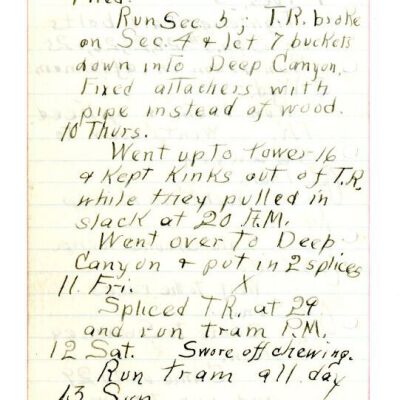 Fixed.
Run Sec. 5; T.R. broke
on Sec. 4 & let 7 buckets
down into Deep Canyon,
Fixed attachers with
pipe instead of wood.
10 Thurs.
Went up to tower 16
& Kept Kinks out of T.R.
while they pulled in
slack at 20 A.M.
Went over to Deep
Canyon & put in 2 splices
11. Fri. X
Spliced T.R. at 29
and run tram P.M.
12 Sat. Swore off chewing.
Run tram all day
13 Sun